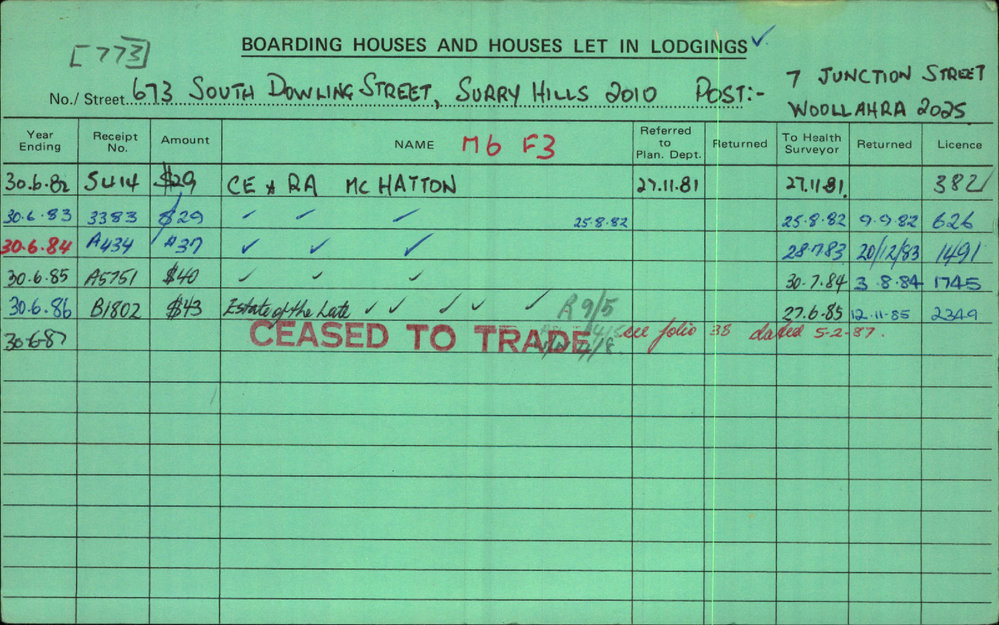 [773]
BOARDING HOUSES AND HOUSES LET IN LODGINGS ✓
No./Street 673 SOUTH DOWLING STREET, SURRY HILLS 2010 POST:- 7 JUNCTION STREET
WOOLLAHRA 2025
Year Ending Receipt No. Amount NAME M6 F3 Referred to Plan. Dept. Returned To Health Surveyor Returned Licence
30.6.82 5414 $29 CE & RA MC HATTON 27.11.81 27.11.81 382
30.6.83 3383 $29 ✓ ✓ ✓ 25.8.82 25.8.82 9.9.82 626
30.6.84 A434 $37 ✓ ✓ ✓ 28.7.83 20/12/83 1491
30.6.85 A5751 $40 ✓ ✓ ✓ 30.7.84 3.8.84 1745
30.6.86 B1802 $43 Estate of the Late ✓ ✓ ✓ ✓ ✓ R 9/5 27.6.85 12.11.85 2349
30.6.87 CEASED TO TRADE see folio 38 dated 5-2-87.